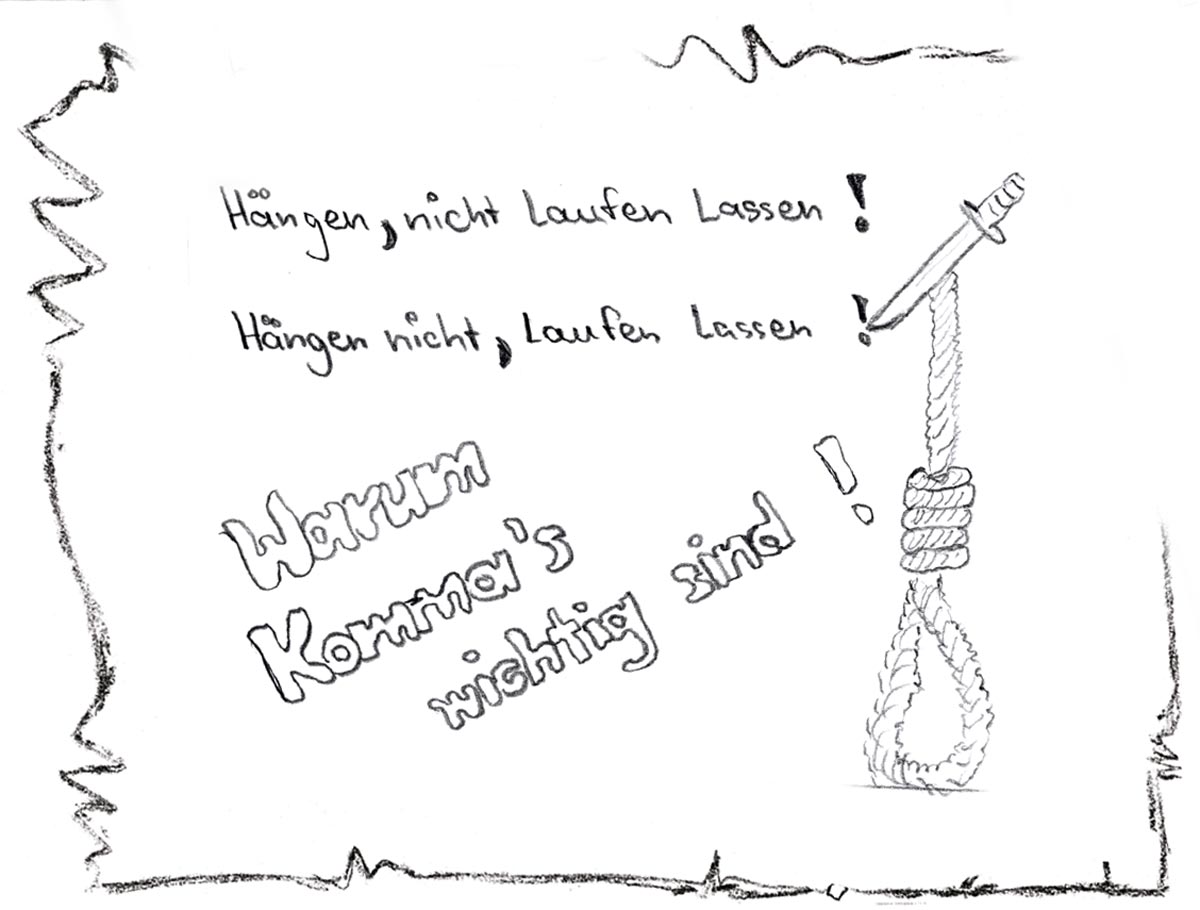 Hängen, nicht Laufen Lassen !
Hängen nicht, Laufen Lassen !
Warum
Komma's
wichtig sind !